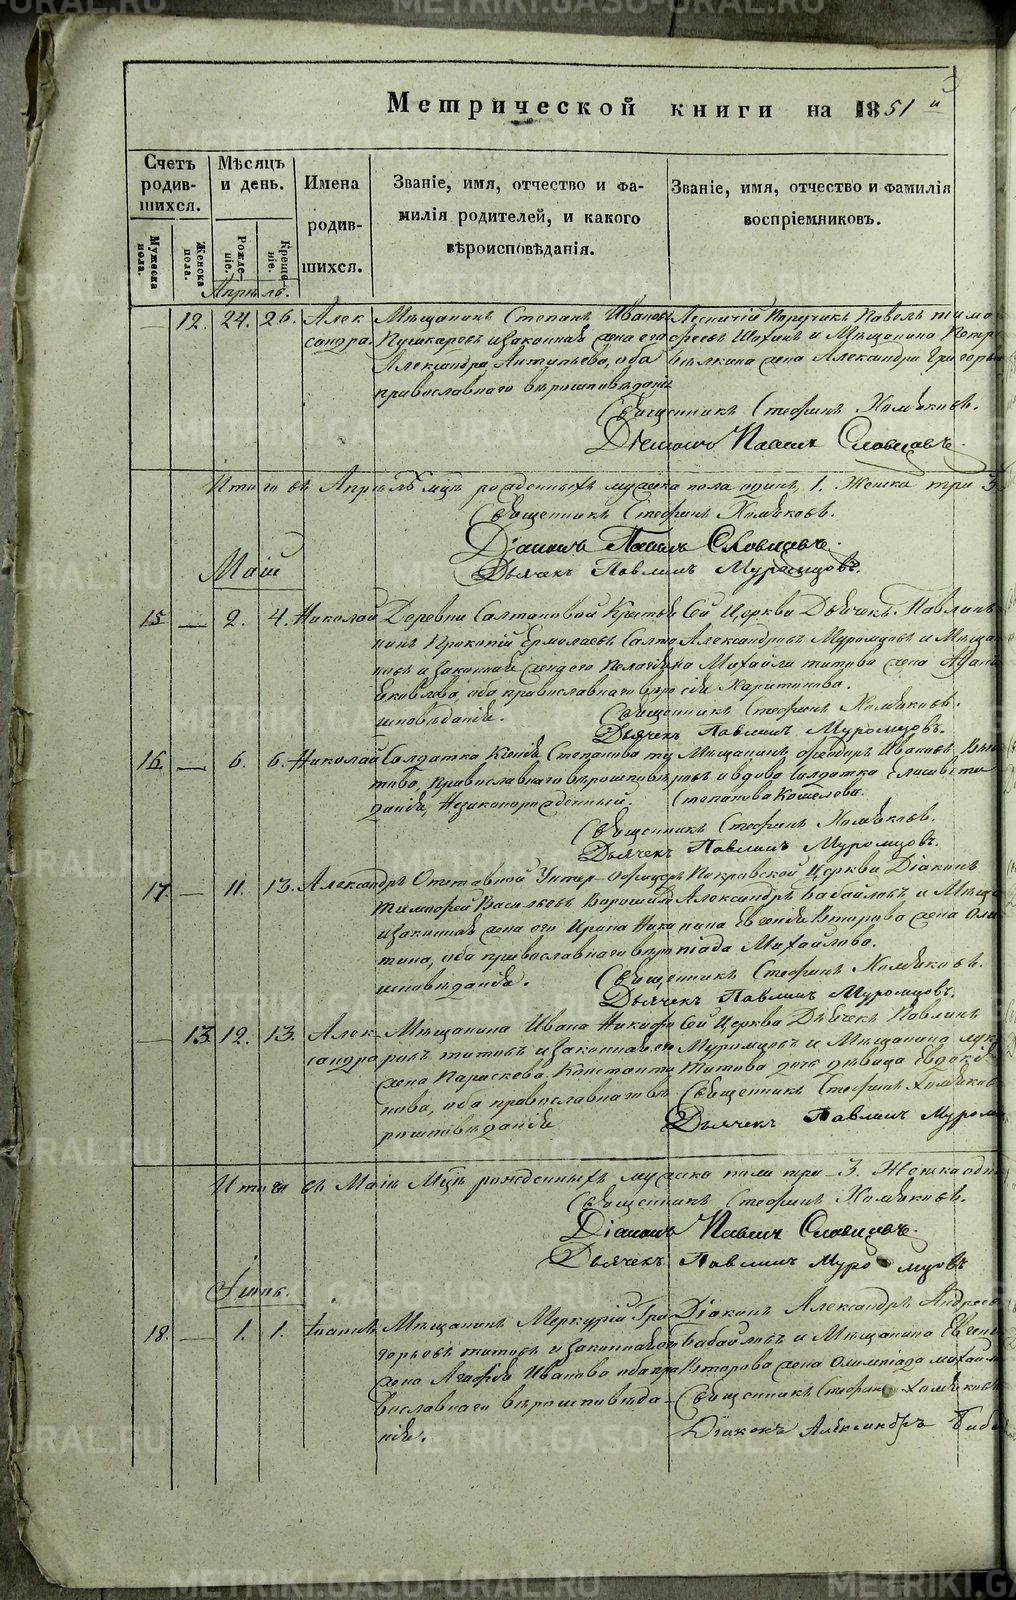 METRIKI.GASO-URAL.RU
Метрической книги на 1851 й
Счетъ родив-шихся.
Мѣсяцъ и день.
Имена родив-шихся.
Званіе, имя, отчество и фа-
милія родителей, и какого
вѣроисповѣданія.
Званіе, имя, отчество и фамилія
воспріемниковъ.
Мужеска пола.
Женска пола.
Рожде-ніе.
Креще-ніе.
Апрѣль.
12. 24. 26. Алек
сандра.
Мѣщанинъ Степанъ Ивановъ
Пушкаревъ и законная жена его
Александра Антипьева, оба
православнаго вѣроисповѣданія
Лесничій Поручикъ Павелъ
Шахинъ и Мѣщанина Петра
жена Александра Григорьева
Священникъ Стефанъ Хомяковъ.
Діаконъ Павелъ Словцовъ.
Итого въ Апрѣлѣ мцѣ рожденныхъ мужска пола одинъ, 1. Женска три 3.
Священникъ Стефанъ Хомяковъ.
Діаконъ Павелъ Словцовъ.
Дьячекъ Павлинъ Муромцовъ.
Май
15 — 2. 4. Николай
Деревни Салтановой Крестья
нинъ Прокопій Ермолаевъ Салта
новъ и законная жена его Пелагія
Яковлева оба православнаго вѣро
исповѣданія.
Сей Церкви Дьячекъ Павлинъ
Александровъ Муромцовъ и Мѣща
нина Михайла Титова жена
Харитонова.
Священникъ Стефанъ Хомяковъ.
Дьячекъ Павлинъ Муромцовъ.
16. — 6. 6. Николай
Солдатка Ксенія Степанова Ти
това, Православнаго вѣроисповѣ
данія, Незаконнорожденный.
Мѣщанинъ Ѳедоръ Ивановъ
и вдова Солдатка Елисавета
Степанова Кошелева.
Священникъ Стефанъ Хомяковъ.
Дьячекъ Павлинъ Муромцовъ.
17. — 11. 13. Александръ
Отставной Унтер-Офицеръ
Тимофей Васильевъ Ворошинъ
и законная жена его Ирина Ники
тина, оба православнаго вѣро
исповѣданія.
Покровской Церкви Діаконъ
Александръ Бабайловъ и Мѣща
нина Евгенія Второва жена Оли
мпіада Михайлова.
Священникъ Стефанъ Хомяковъ.
Дьячекъ Павлинъ Муромцовъ.
— 13. 12. 13. Алек
сандра
Мѣщанина Ивана Никифо
ровъ Титовъ и законная его
жена Параскева Константи
нова, оба православнаго вѣ
роисповѣданія
Сей Церкви Дьячекъ Павлинъ
Муромцовъ и Мѣщанина
Титова дочь дѣвица Евдокія
Священникъ Стефанъ Хомяковъ
Дьячекъ Павлинъ Муромц
Итого въ Маіѣ Мцѣ рожденныхъ мужска пола три 3. Женска одна
Священникъ Стефанъ Хомяковъ.
Діаконъ Павелъ Словцовъ.
Дьячекъ Павлинъ Муромцовъ
Іюнь.
18. — 1. 1. Іоаннъ
Мѣщанинъ Меркурій Гри
горьевъ Титовъ и законная его
жена Агафія Иванова оба пра
вославнаго вѣроисповѣда
нія.
Діаконъ Александръ Андреевъ
Бабайловъ и Мѣщанина Евгенія
Второва жена Олимпіада Михайл
Священникъ Стефанъ Хомяковъ
Діаконъ Александръ Бабай